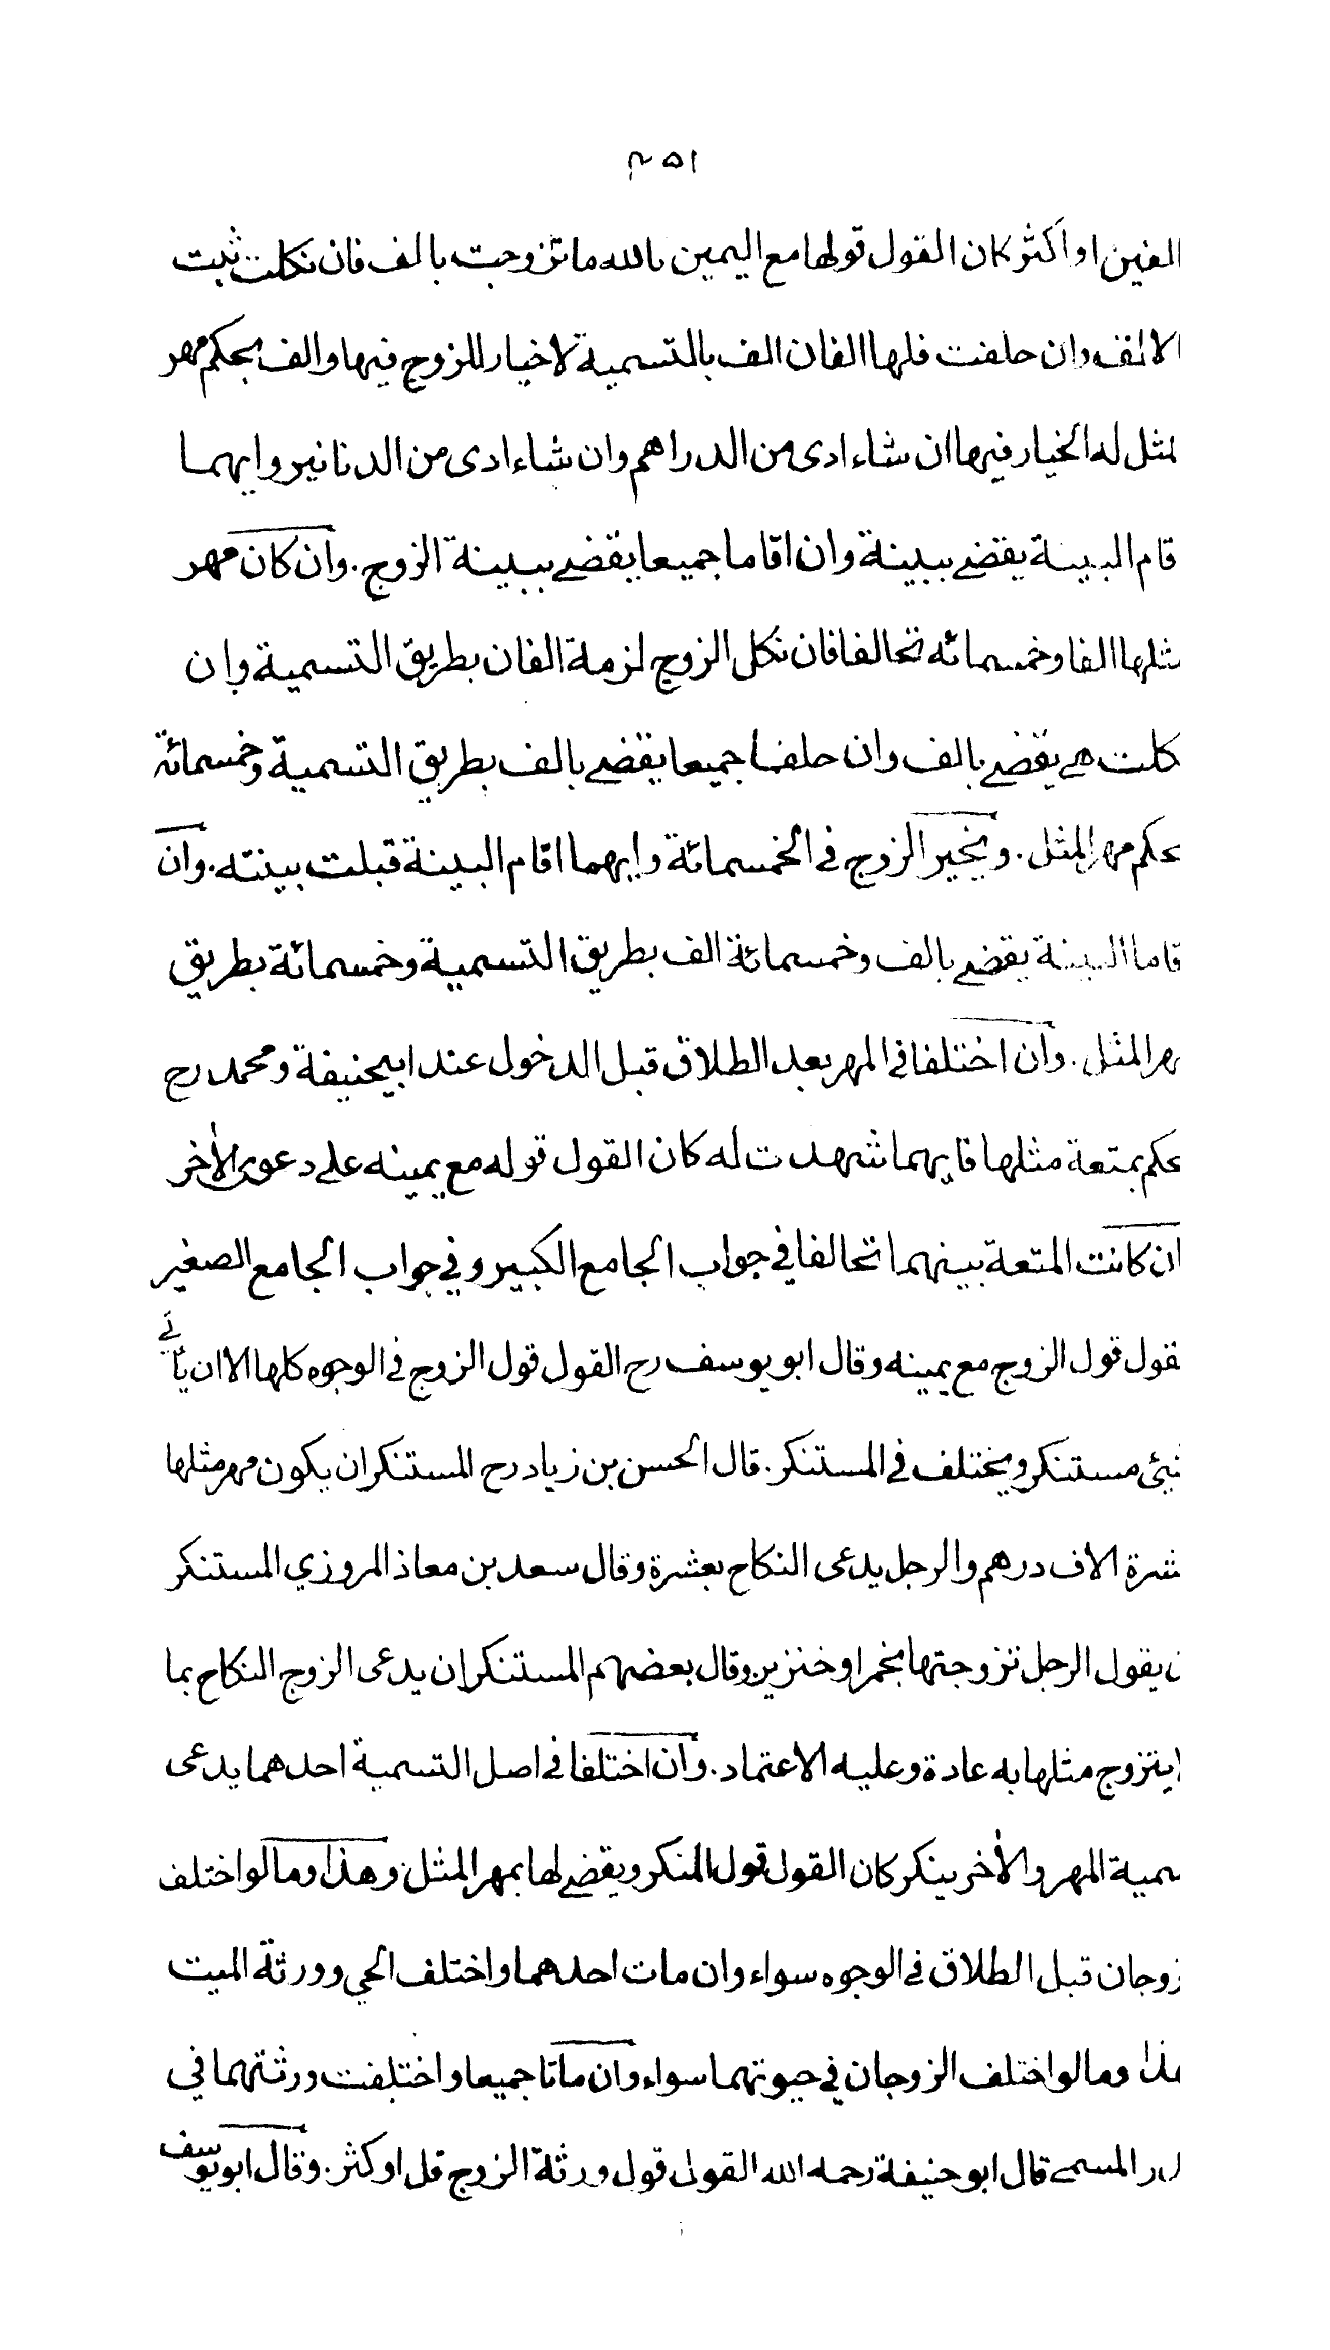 ٤٥١
الفين او اكثر كان القول قولها مع اليمين بالله ما تزوجت بالف فان نكلت ثبت
الالف وان حلفت فلها الفان الف بالتسمية لا خيار للزوج فيها والف بحكم مهر
لمثل له الخيار فيها ان شاء ادى من الدراهم وان شاء ادى من الدنانير وايهما
قام البينة يقضى ببينة وان اقاما جميعا يقضى ببينة الزوج . وان كان مهر
مثلها الفا وخمسمائه تحالفا فان نكل الزوج لزمة الفان بطريق التسمية وان
كلت هى يقضى بالف وان حلفا جميعا يقضى بالف بطريق التسمية وخمسمائة
حكم مهر المثل . ويخير الزوج في الخمسمائة وايهما اقام البينة قبلت بينته . وان
قاما البينة يقضى بالف وخمسمائة الف بطريق التسمية وخمسمائة بطريق
مهر المثل . وان اختلفا في المهر بعد الطلاق قبل الدخول عند ابيحنيفة ومحمد رح
حكم بمتعة مثلها فايهما شهدت له كان القول قوله مع يمينه على دعوى الأخر
ان كانت المتعة بينهما تحالفا في جواب الجامع الكبير وفي جواب الجامع الصغير
لقول قول الزوج مع يمينه وقال ابو يوسف رح القول قول الزوج في الوجوه كلها الا ان يأتي
شيئ مستنكر ويختلف في المستنكر . قال الحسن بن زياد رح المستنكر ان يكون مهر مثلها
عشرة الاف درهم والرجل يدعى النكاح بعشرة وقال سعد بن معاذ المروزي المستنكر
ن يقول الرجل تزوجتها بخمر او خنزير وقال بعضهم المستنكر ان يدعى الزوج النكاح بما
لا يتزوج مثلها به عادة وعليه الاعتماد . وان اختلفا في اصل التسمية احدهما يدعى
سمية المهر والأخر ينكر كان القول قول المنكر ويقضى لها بمهر المثل وهذا وما لو اختلف
زوجان قبل الطلاق في الوجوه سواء وان مات احدهما واختلف الحي وورثة الميت
هذا وما لو اختلف الزوجان في حيوتهما سواء وان ماتا جميعا واختلفت ورثتهما في
در المسمى قال ابو حنيفة رحمه الله القول قول ورثة الزوج قل او كثر . وقال ابو يوسف